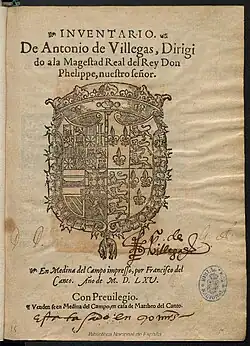 INVENTARIO.
De Antonio de Villegas, Dirigi
do a la Magestad Real del Rey Don
Phelippe, nuestro señor.
de
Villegas
En Medina del Campo impresso, por Francisco del
Canto. Año de M. D. LXV.
Con Preuilegio.
¶ Venden se en Medina del Campo, en casa de Mattheo del Canto.
Esta tasado en
Biblioteca Nacional de España